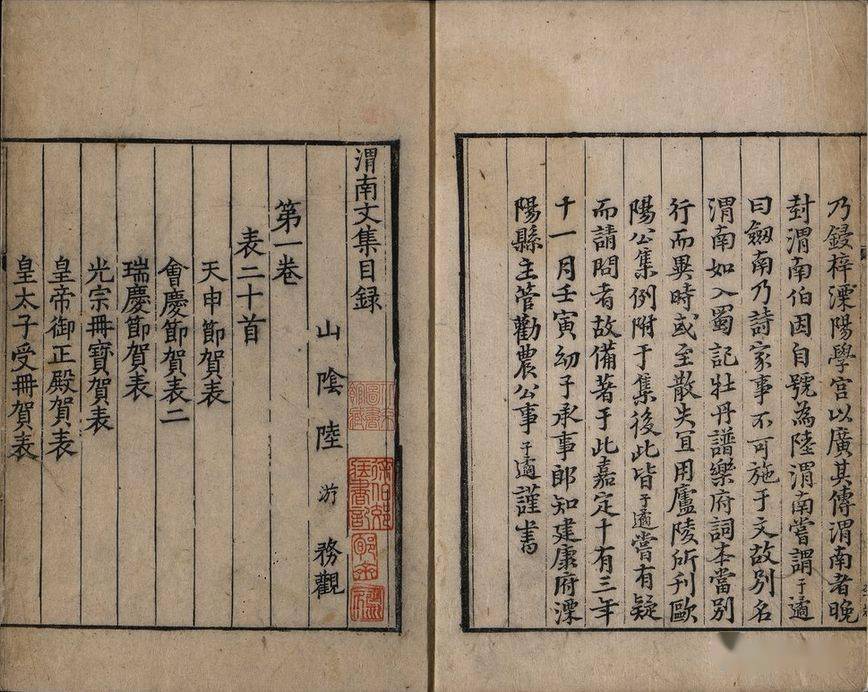 乃鋟梓溧陽學官以廣其傳渭南者晚
封渭南伯因自號為陸渭南嘗謂子遹
曰劔南乃詩家事不可施于文故别名
渭南如入蜀記牡丹譜樂府詞本當别
行而異時或至散失宜用廬陵所刊歐
陽公集例附于集後此皆子遹嘗有疑
而請問者故備著于此嘉定十有三年
十一月壬寅幼子承事郎知建康府溧
陽縣主管勸農公事子遹謹書
渭南文集目録
山陰陸游務觀
第一卷
表二十首
天申節賀表
會慶節賀表二
瑞慶節賀表
光宗冊寶賀表
皇帝御正殿賀表
皇太子受冊賀表